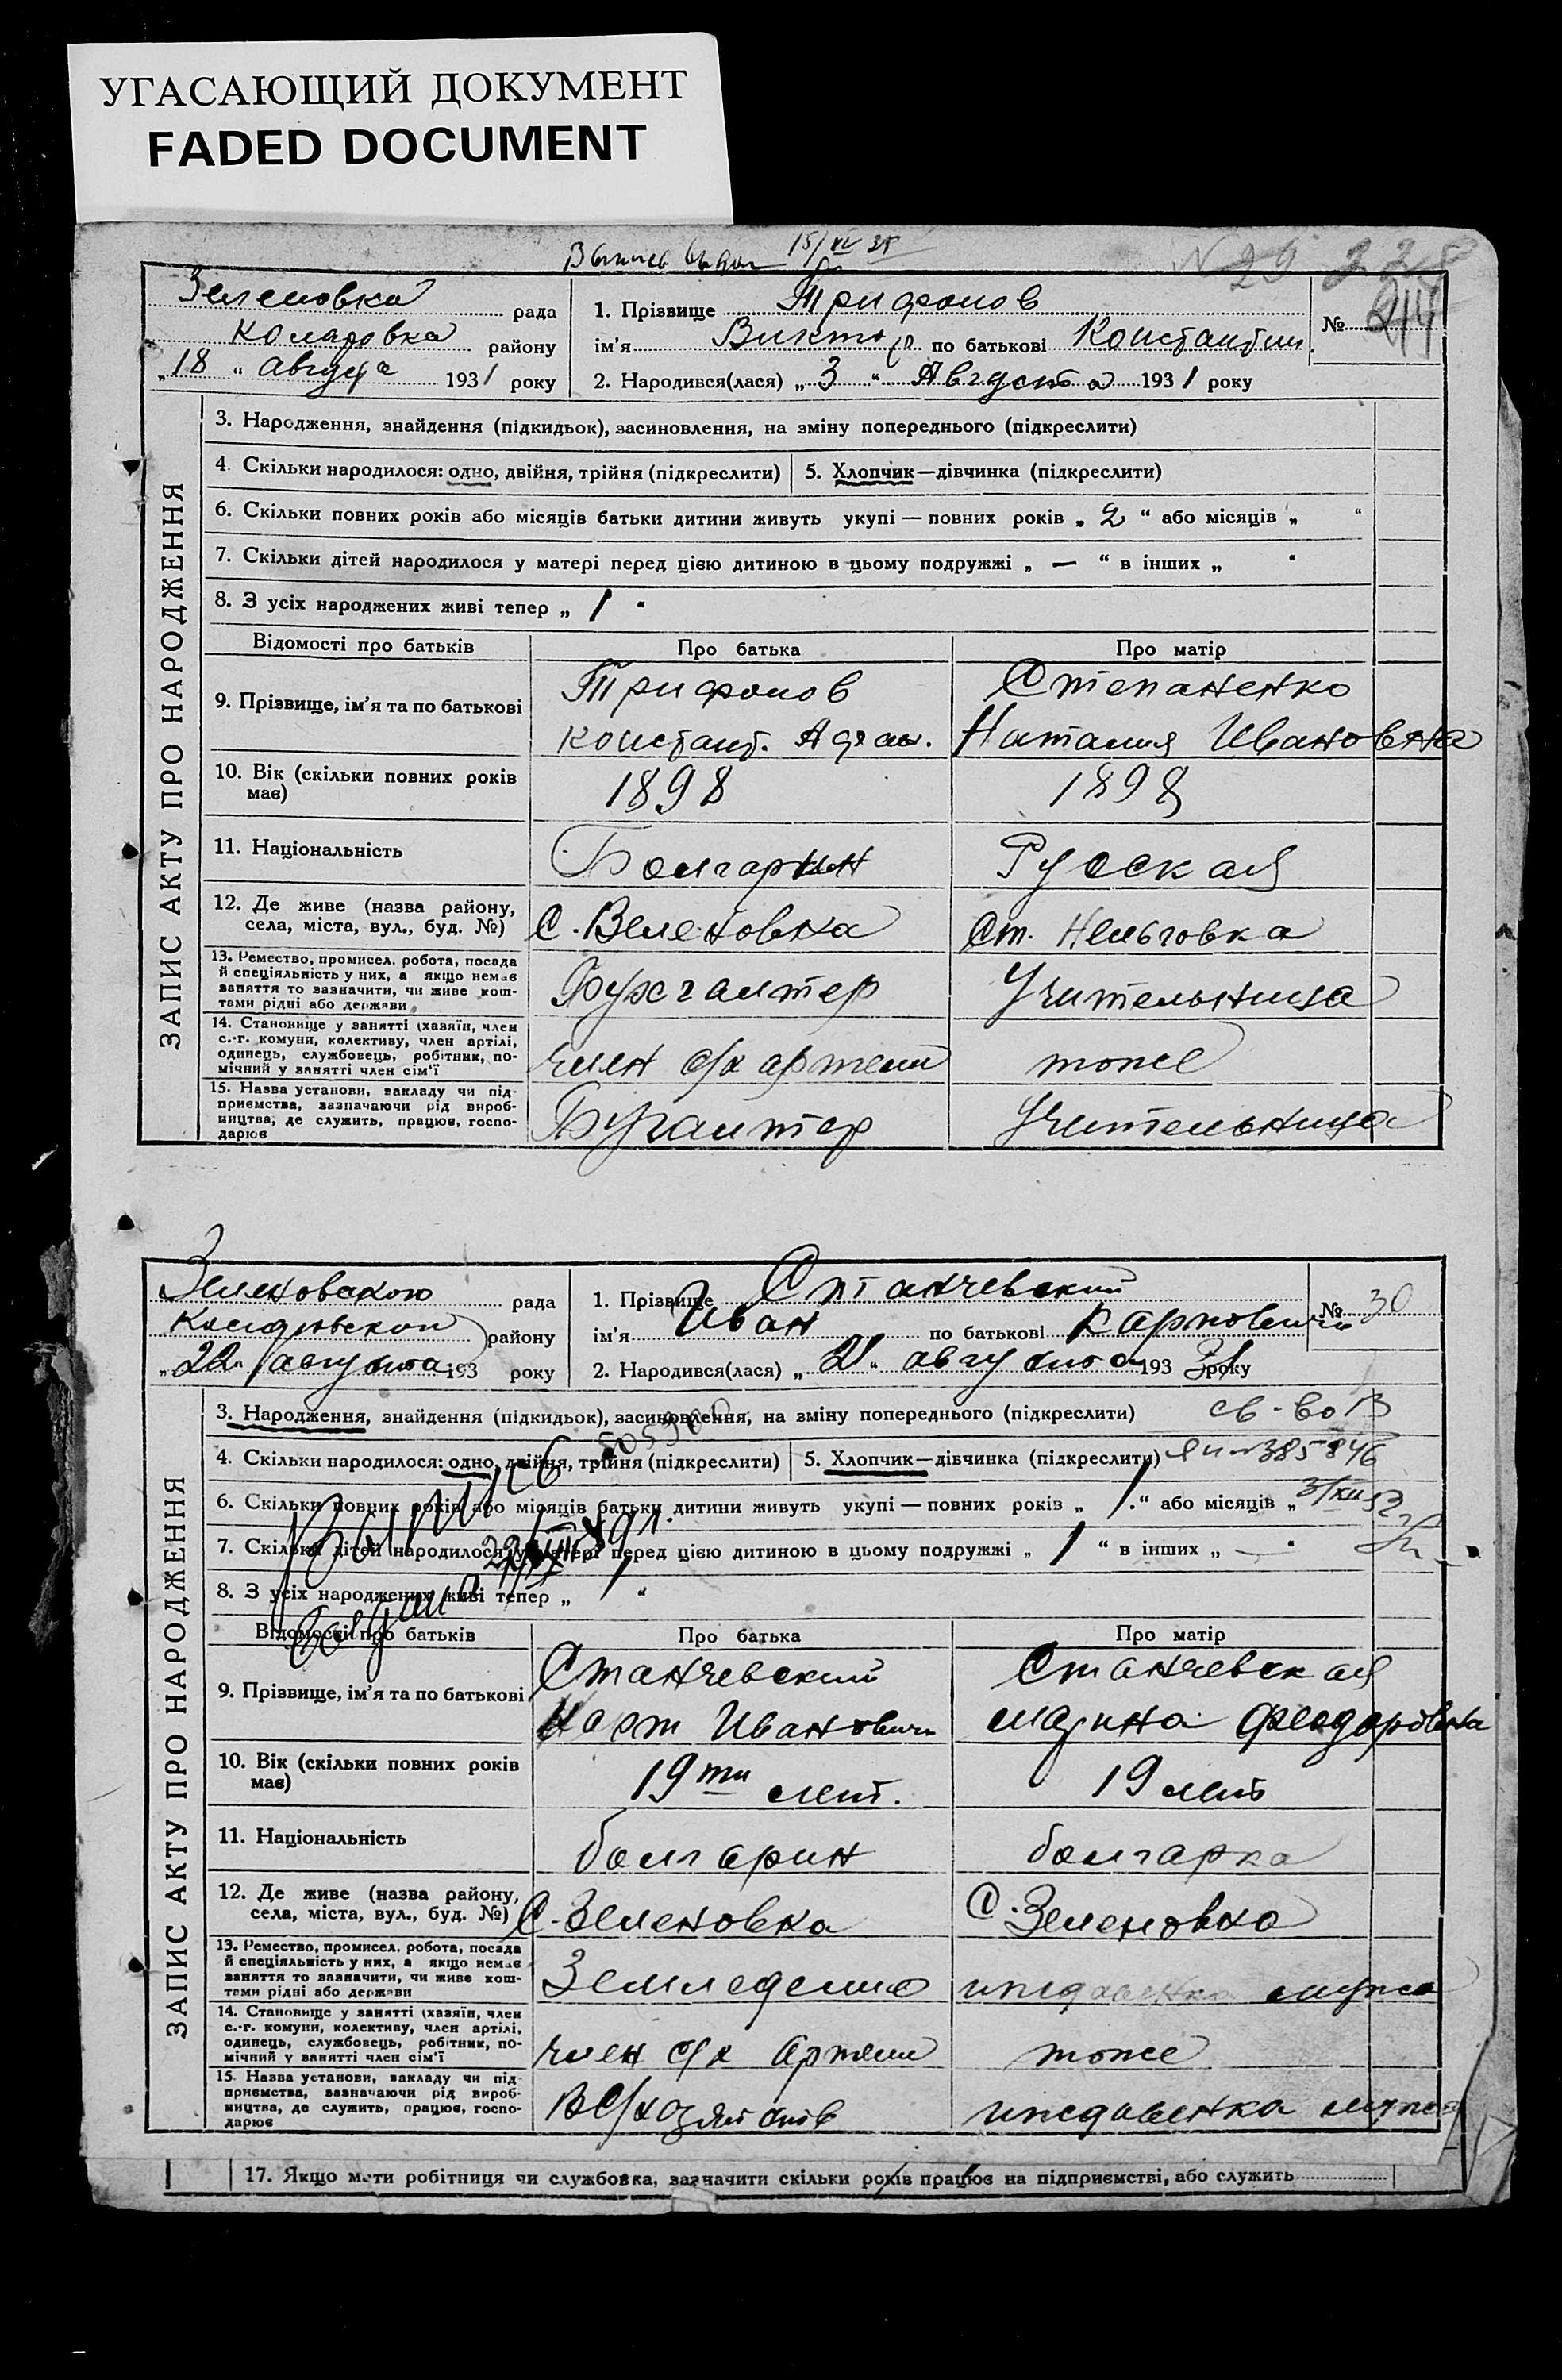 УГАСАЮЩИЙ ДОКУМЕНТ
FADED DOCUMENT
15/XI 35
Зеленовка рада
Коларовка району
„18“ Августа 1931 року
1. Прізвище Трифонов
ім'я Виктор по батькові Константин.
2. Народився(лася) „3“ Августа 1931 року
№
ЗАПИС АКТУ ПРО НАРОДЖЕННЯ
3. Народження, знайдення (підкидьок), засиновлення, на зміну попереднього (підкреслити)
4. Скільки народилося: одно, двійня, трійня (підкреслити)
5. Хлопчик—дівчинка (підкреслити)
6. Скільки повних років або місяців батьки дитини живуть укупі — повних років „2“ або місяців „ “
7. Скільки дітей народилося у матері перед цією дитиною в цьому подружжі „ — “ в інших „ “
8. З усіх народжених живі тепер „1“
Відомості про батьків
Про батька
Про матір
9. Прізвище, ім'я та по батькові
Трифонов
Констант.
Степаненко
Наталия Ивановна
10. Вік (скільки повних років має)
1898
1898
11. Національність
Болгарин
Русская
12. Де живе (назва району, села, міста, вул., буд. №)
С. Зеленовка
Ст. Нельговка
13. Ремество, промисел, робота, посада й спеціяльність у них, а якщо немає заняття то зазначити, чи живе коштами рідні або держави
Бухгалтер
Учительница
14. Становище у занятті (хазяїн, член с.-г. комуни, колективу, член артілі, одинець, службовець, робітник, помічний у занятті член сім'ї
член с/х артели
тоже
15. Назва установи, закладу чи підприємства, зазначаючи рід виробництва, де служить, працює, господарює
Бугалтер
Учительница
Зеленовскою рада
району
„22“ августа 193 року
1. Прізвище Станчевский
ім'я Иван по батькові Карпович
2. Народився(лася) „21“ августа 1931 року
№ 30
ЗАПИС АКТУ ПРО НАРОДЖЕННЯ
3. Народження, знайдення (підкидьок), засиновлення, на зміну попереднього (підкреслити)
св-во
4. Скільки народилося: одно, двійня, трійня (підкреслити)
5. Хлопчик—дівчинка (підкреслити)
385846
6. Скільки повних років або місяців батьки дитини живуть укупі — повних років „1“ або місяців „ “
7. Скільки дітей народилося у матері перед цією дитиною в цьому подружжі „1“ в інших „ — “
8. З усіх народжених живі тепер „1“
Відомості про батьків
Про батька
Про матір
9. Прізвище, ім'я та по батькові
Станчевский
Иванович
Станчевская
Феодоровна
10. Вік (скільки повних років має)
19ти лет.
19 лет
11. Національність
болгарин
болгарка
12. Де живе (назва району, села, міста, вул., буд. №)
С. Зеленовка
С. Зеленовка
13. Ремество, промисел, робота, посада й спеціяльність у них, а якщо немає заняття то зазначити, чи живе коштами рідні або держави
Земледелие
иждивенка мужа
14. Становище у занятті (хазяїн, член с.-г. комуни, колективу, член артілі, одинець, службовець, робітник, помічний у занятті член сім'ї
член с/х артели
тоже
15. Назва установи, закладу чи підприємства, зазначаючи рід виробництва, де служить, працює, господарює
иждивенка мужа
17. Якщо мати робітниця чи службовка, зазначити скільки років працює на підприємстві, або служить